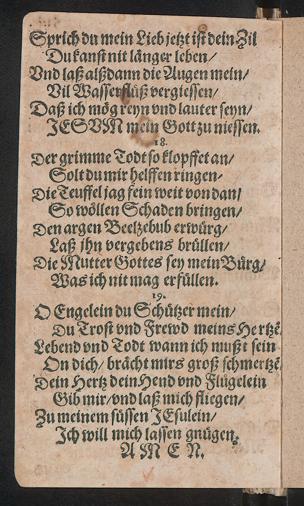 Sprich du mein Lieb jetzt ist dein Zil
Du kanst nit länger leben/
Vnd laß alßdann die Augen mein/
Vil Wasserflüß vergiessen/
Daß ich mög reyn vnd lauter seyn/
JESVM mein Gott zu niessen.
18.
Der grimme Todt so klopffet an/
Solt du mir helffen ringen/
Die Teuffel jag fein weit von dan/
So wöllen Schaden bringen/
Den argen Beeltzebub erwürg/
Laß jhn vergebens brüllen/
Die Mutter Gottes sey mein Bürg/
Was ich nit mag erfüllen.
19.
O Engelein du Schützer mein/
Du Trost vnd Frewd meins Hertzē/
Lebend vnd Todt wann ich mußt sein
On dich/ brächt mirs groß schmertzē/
Dein Hertz dein Hend vnd Flügelein
Gib mir/ vnd laß mich fliegen/
Zu meinem süssen JEsulein/
Ich will mich lassen gnügen.
A M E N.